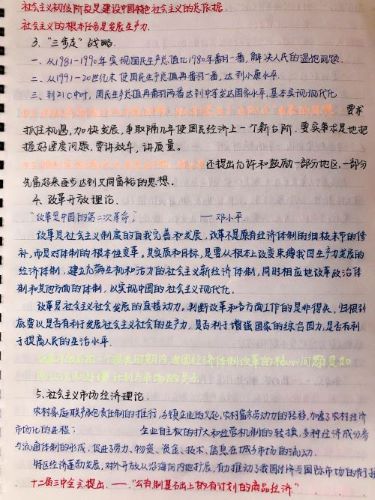 社会主义初级阶段是建设中国特色社会主义的总依据
社会主义的根本任务是发展生产力.
3. “三步走”战略.
一、从1981-1990年实现国民生产总值比1980年番一番, 解决人民的温饱问题
二、从1991-20世纪末使国民生产总值再番一番, 达到小康水平.
三、到21C中叶, 国民生产总值再番两番达到中等发达国家水平, 基本实现现代化
要求
抓住机遇, 加快发展, 争取隔几年使国民经济上一个新台阶. 要实事求是地把
握好速度问题, 要讲效率, 讲质量.
还提出允许和鼓励一部分地区、一部分
先富起来逐步达到共同富裕的思想.
4. 改革开放理论.
“改革是中国的第二次革命” ——邓小平.
改革是社会主义制度的自我完善和发展, 改革不是原有经济体制的细枝末节的修
补, 而是对体制的根本性变革, 其实质和目标, 是要从根本上改变束缚我国生产力发展的
经济体制, 建立充满生机和活力的社会主义新经济体制, 同时相应地改革政治体
制和其他方面的体制, 以实现中国的社会主义现代化.
改革是社会主义社会发展的直接动力, 判断改革和各方面工作的是非得失, 归根到
底要以是否有利于发展社会主义社会的生产力, 是否有利于增强国家的综合国力, 是否有利
于提高人民的生活水平.
5. 社会主义市场经济理论.
农村家庭联产承包责任制的推行, 乡镇企业的兴起, 农村富余劳动力的转移, 加速了农村经济
市场化的进程; 企业自主权的扩大和经营机制的转换, 多种经济成分参
与流通体制的形成, 促进了劳力、物资、资金、技术、信息在城乡市场的流动.
特区经济蓬勃发展, 对外开放从沿海向内地扩展, 有力推动了我国经济与国际市场的
十二届三中全会提出, ——“公有制基础上的有计划的商品经济”